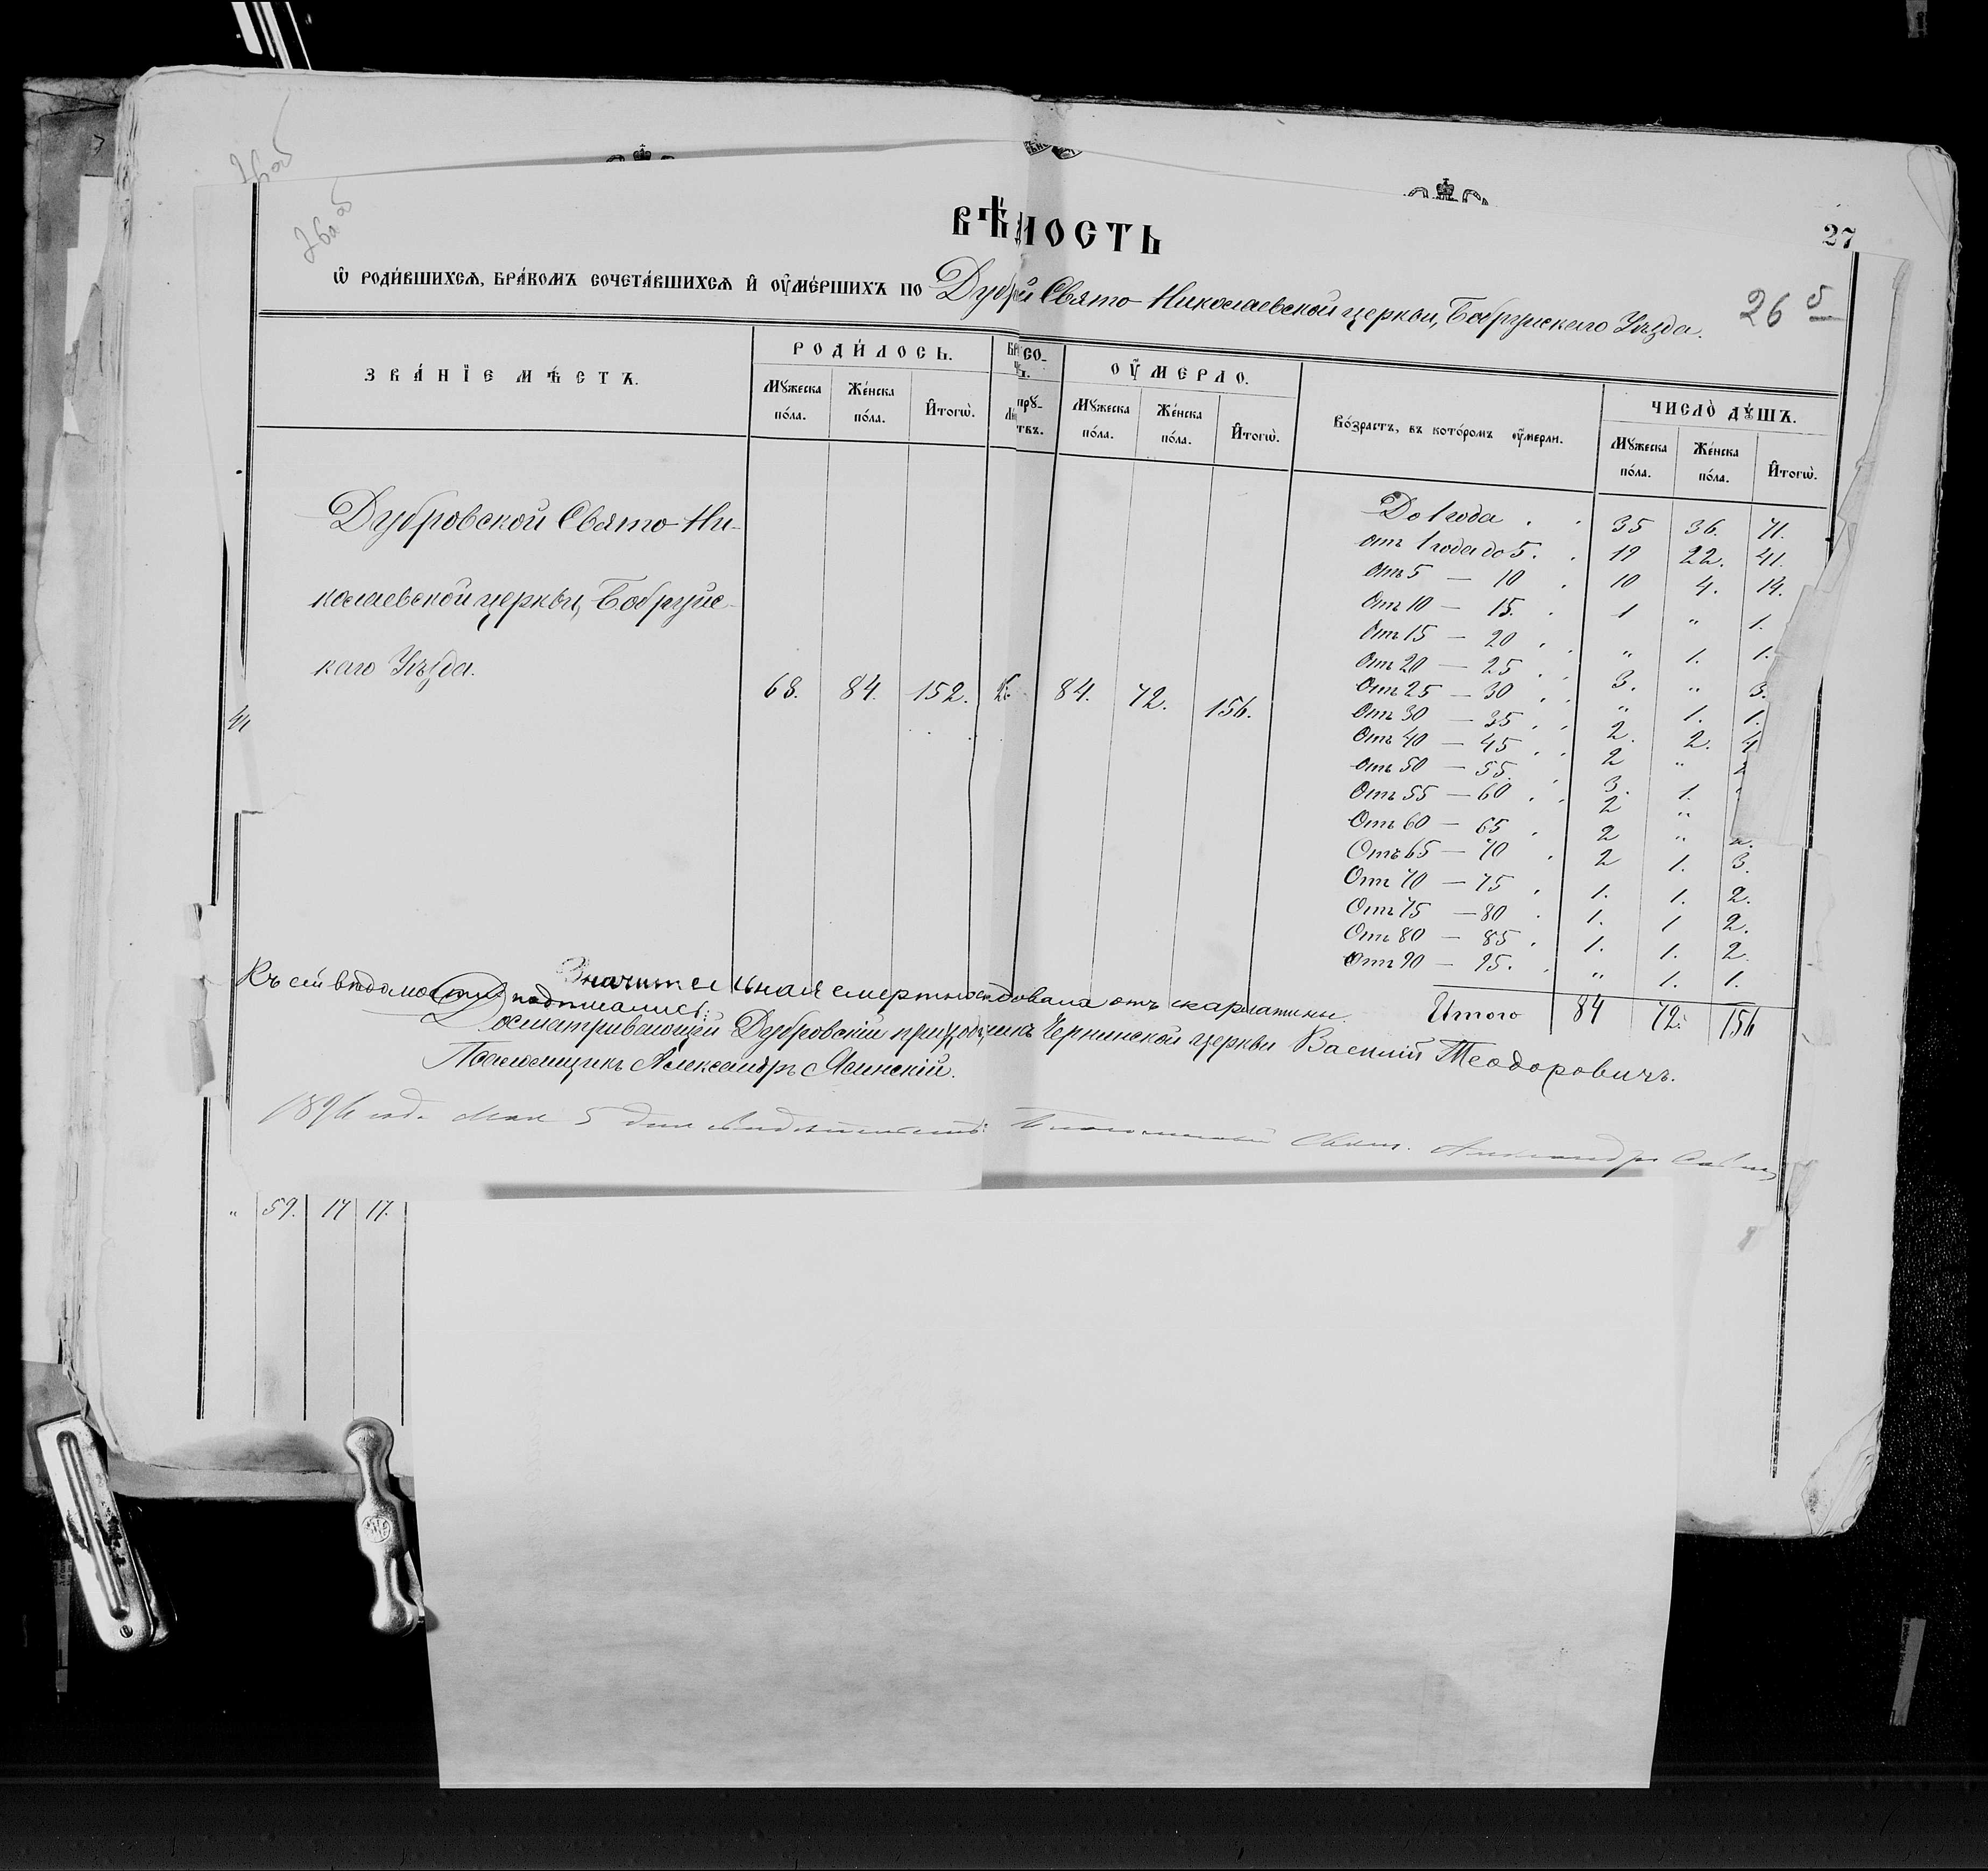 27
26 б
26 об
ВѢ МОСТЬ
Ѡ РОДИ́ВШИХСѦ, БРА́КОМЪ СОЧЕТА́ВШИХСѦ И҆ ОУ҆МЕ́РШИХЪ ПО Дуб й Свято Николаевской церкви, Бобруйскаго Уѣзда.
ЗВА́НІЕ МѢ́СТЪ.
РОДИ́ЛОСЬ.
Мꙋ́жеска по́ла.
Же́нска по́ла.
И҆тогѡ̀.
ОУ҆́МЕРЛО.
Мꙋ́жеска по́ла.
Же́нска по́ла.
И҆тогѡ̀.
Во́зрастъ, въ кото́ромъ оу҆́мерли.
ЧИСЛО̀ ДꙊ́ШЪ.
Мꙋ́жеска по́ла.
Же́нска по́ла.
И҆тогѡ̀.
Дубровской Свято-Ни-
колаевской церкви, Бобруйс-
каго Уѣзда.
68. 84. 152. 84. 72. 156.
До 1 года . . 35 36. 71.
отъ 1 года до 5. . 19 22. 41.
Отъ 5 — 10 . 10 4. 14.
Отъ 10 — 15. . 1 " 1.
Отъ 15 — 20 . . " 1. 1.
Отъ 20 — 25 . . 3. " 3.
Отъ 25 — 30 . . " 1. 1.
Отъ 30 — 35 . . 2. 2. 4
Отъ 40 — 45 . . 2 " 2
Отъ 50 — 55. . 3. 1.
Отъ 55 — 60 . . 2 "
Отъ 60 — 65 . 2 " 2.
Отъ 65 — 70 . 2 1. 3.
Отъ 70 — 75 . 1. 1. 2.
Отъ 75 — 80 . 1. 1 2.
Отъ 80 — 85 . 1. 1. 2
Отъ 90 — 95. . " 1. 1.
Итого 84 72. 156
Значительная смертно довала отъ скарлатины.
Къ сей вѣдомости подписались:
Досматривающій Дубровскій приход Чернинской церкви Василій Теодоровичъ.
Псаломщикъ Александръ Ясинскій.
года Мая 5 дня свидѣтельств Благочинный Свящ. Александръ
" 59. 17 17.